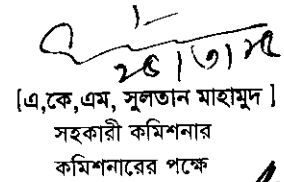 [এ,কে,এম, সুলতান মাহামুদ ]
সহকারী কমিশনার
কমিশনারের পক্ষে